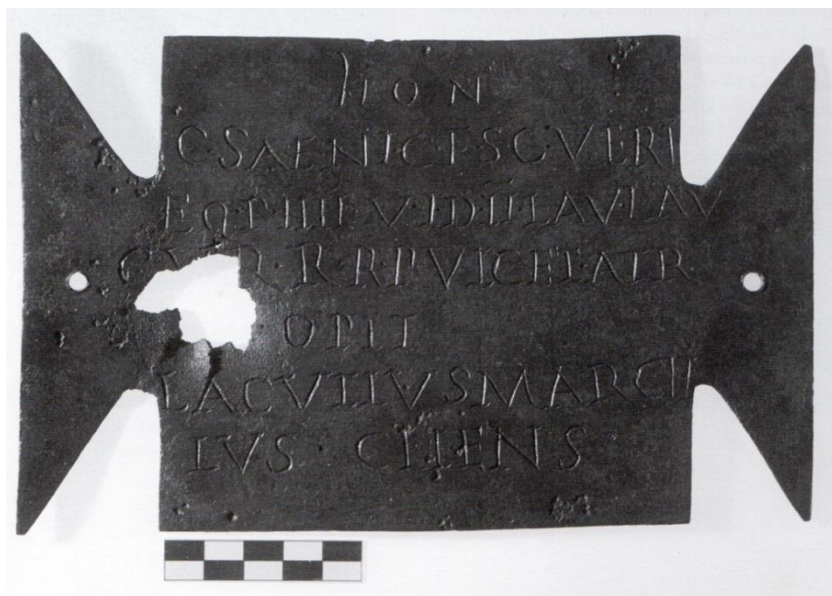 HON
C·SAENI·C·F·SC·VERI
EQ·P·IIIIV·ID·II·LAV·LAV
CVR·R·R·P·VICET·ATR
OPIT
LACVTIVS MARCIL
LVS · CLIENS